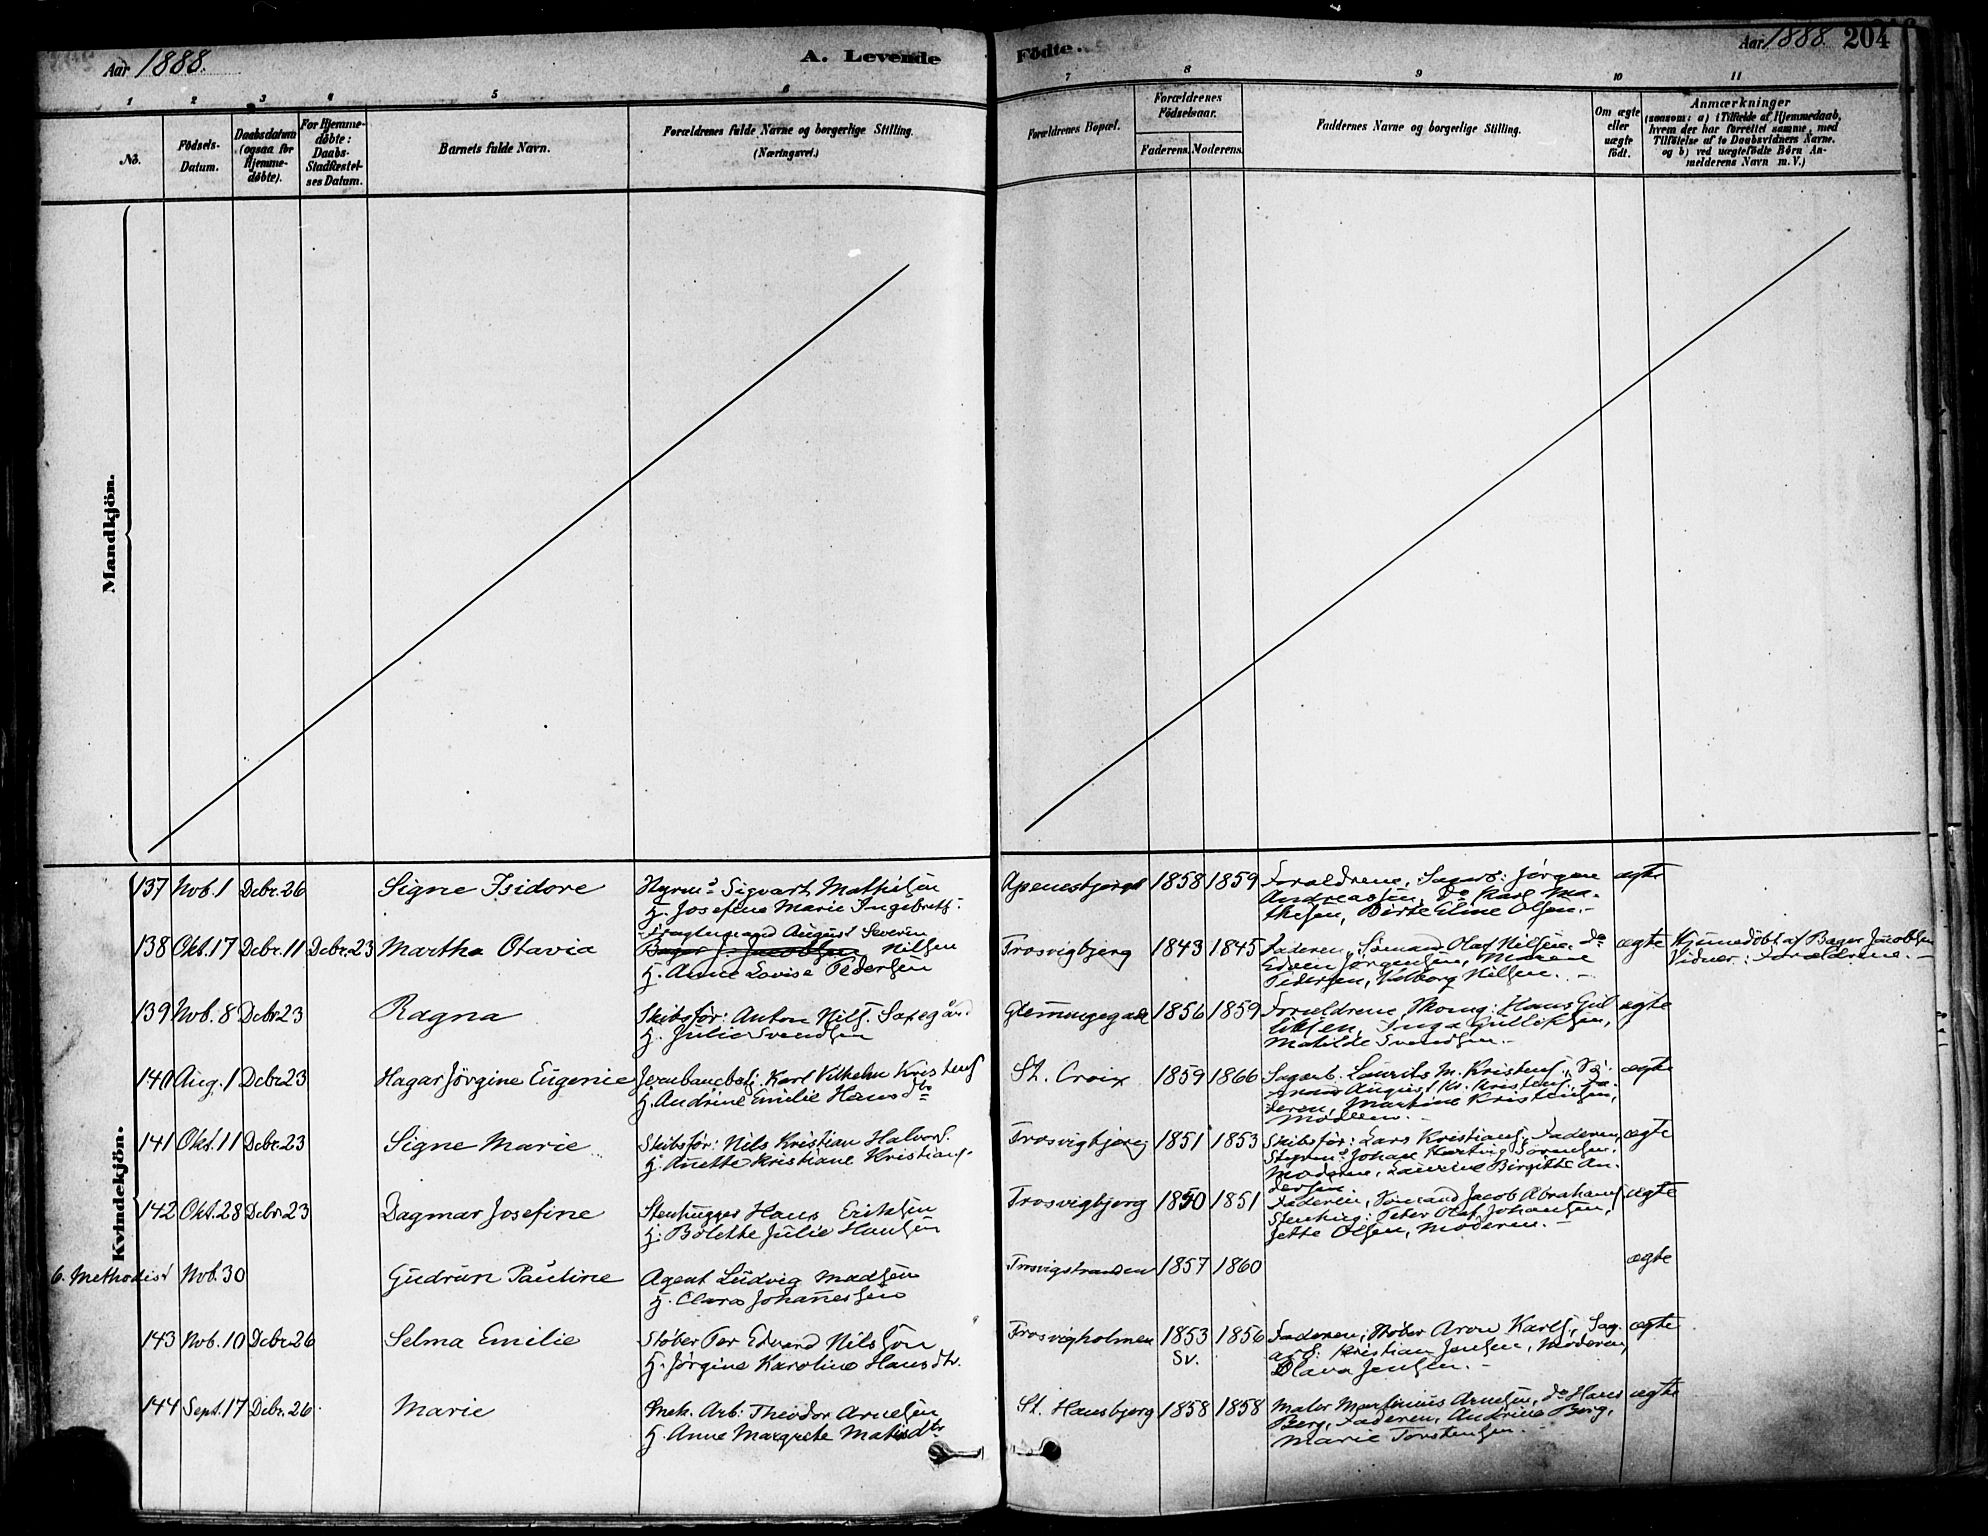 Aar 1888.
A. Levende Födte.
Aar 1888. 204
1 2 3 4 5 6 7 8 9 10 11
No.
Födsels-Datum.
Daabsdatum (ogsaa for Hjemme-døbte).
For Hjemme-døbte: Daabs-Stadfæstel-ses Datum.
Barnets fulde Navn.
Forældrenes fulde Navne og borgerlige Stilling.
(Næringsvei.)
Forældrenes Bopæl.
Forældrenes Födselsaar.
Faderens. Moderens.
Faddernes Navne og borgerlige Stilling.
Om ægte eller uægte födt.
Anmærkninger
(saasom: a) i Tilfælde af Hjemmedaab,
hvem der har forrettet samme, med
Tilföielse af to Daabsvidners Navne.
og b) ved uægtefödte Börn An-
melderens Navn m. V.)
Mandkjön.
Kvindekjön.
137 Nov. 1 Debr. 26 Signe Isidore
Styrmd Sigvart Mathisen
H. Josefine Marie Ingebrets.
Apenesbjerget 1858 1859
Forældrene, Sagarb: Jørgen
Andreassen, Do Karl Ma-
thisen, Birte Eline Olsen.-
ægte
138 Okt. 17 Debr. 11 Debr. 23 Martha Otavia
Fragtemand August Severin
Bager J. Jacobsen Nilsen
H. Anne Lovise Pedersen
Trosvigbjerg 1843 1845
Faderen, Sömand Olaf Nilsen, do
Edvin Jørgensen, Marene
Pedersen, Valborg Nilsen. -
ægte
Hjemmedöbt af Bager Jacobsen
Vidner: Forældrene. -
139 Nov. 8 Debr 23 Ragna
Skibsför: Anton Nils. Saxegård
H. Julie Svendsen
Glemmegade 1856 1859
Forældrene, Skomg: Hans Gul
liksen, Inga Gulliksen,
Matilde Svendsen.-
ægte
140 Aug. 1 Debr 23 Hagar Jörgine Eugenie
Jernbanebetj. Karl Vilhelm Kristens
H. Andrine Emilie Hansdtr
St. Croix 1859 1866
Sagarb. Laurits M. Kristens, Sö-
mand August Kr. Kristens, Fa-
deren, Martine Kristensen,
Moderen. -
ægte
141 Okt. 11 Debr. 23 Signe Marie
Skibsför: Nils Kristian Halvors.
H. Anette Kristiane Kristians.
Trosvigbjerg 1851 1853
Skibsför: Lars Kristians, Faderen,
Styrmd Johan Martin Sörensen,
Moderen, Laurine Birgitte An-
dersen
ægte
142 Okt. 28 Debr. 23 Dagmar Josefine
Stenhugger Hans Eriksen
H. Bolette Julie Hansen
Trosvigbjerg 1850 1851
Faderen, Sömand Jacob Abrahams
Stenhug: Peter Olaf Johansen,
Jette Olsen, Moderen. -
ægte
6. Methodist Nov. 30 Gudrun Pauline
Agent Ludvig Madsen
H. Clara Johannesen
Trosvigstranden 1857 1860
ægte
143 Nov. 10 Debr 26 Selma Emilie
Stöber Per Edvard Nilsson
H. Jørgine Karoline Hansdtr.
Trosvigholmen 1853 Sv. 1856
Faderen, Stöber Aron Karls, Sag-
arb: Kristian Jensen, Moderen,
Olava Jensen. -
ægte
144 Sept. 17 Debr. 26 Marie
Mek. Arb: Theodor Arnesen
H. Anne Margrete Matisdtr
St. Hansbjerg 1858 1858
Maler Martinius Arnesen, do Hans
Berg, Faderen, Andrine Berg,
Marie Torstensen. -
ægte